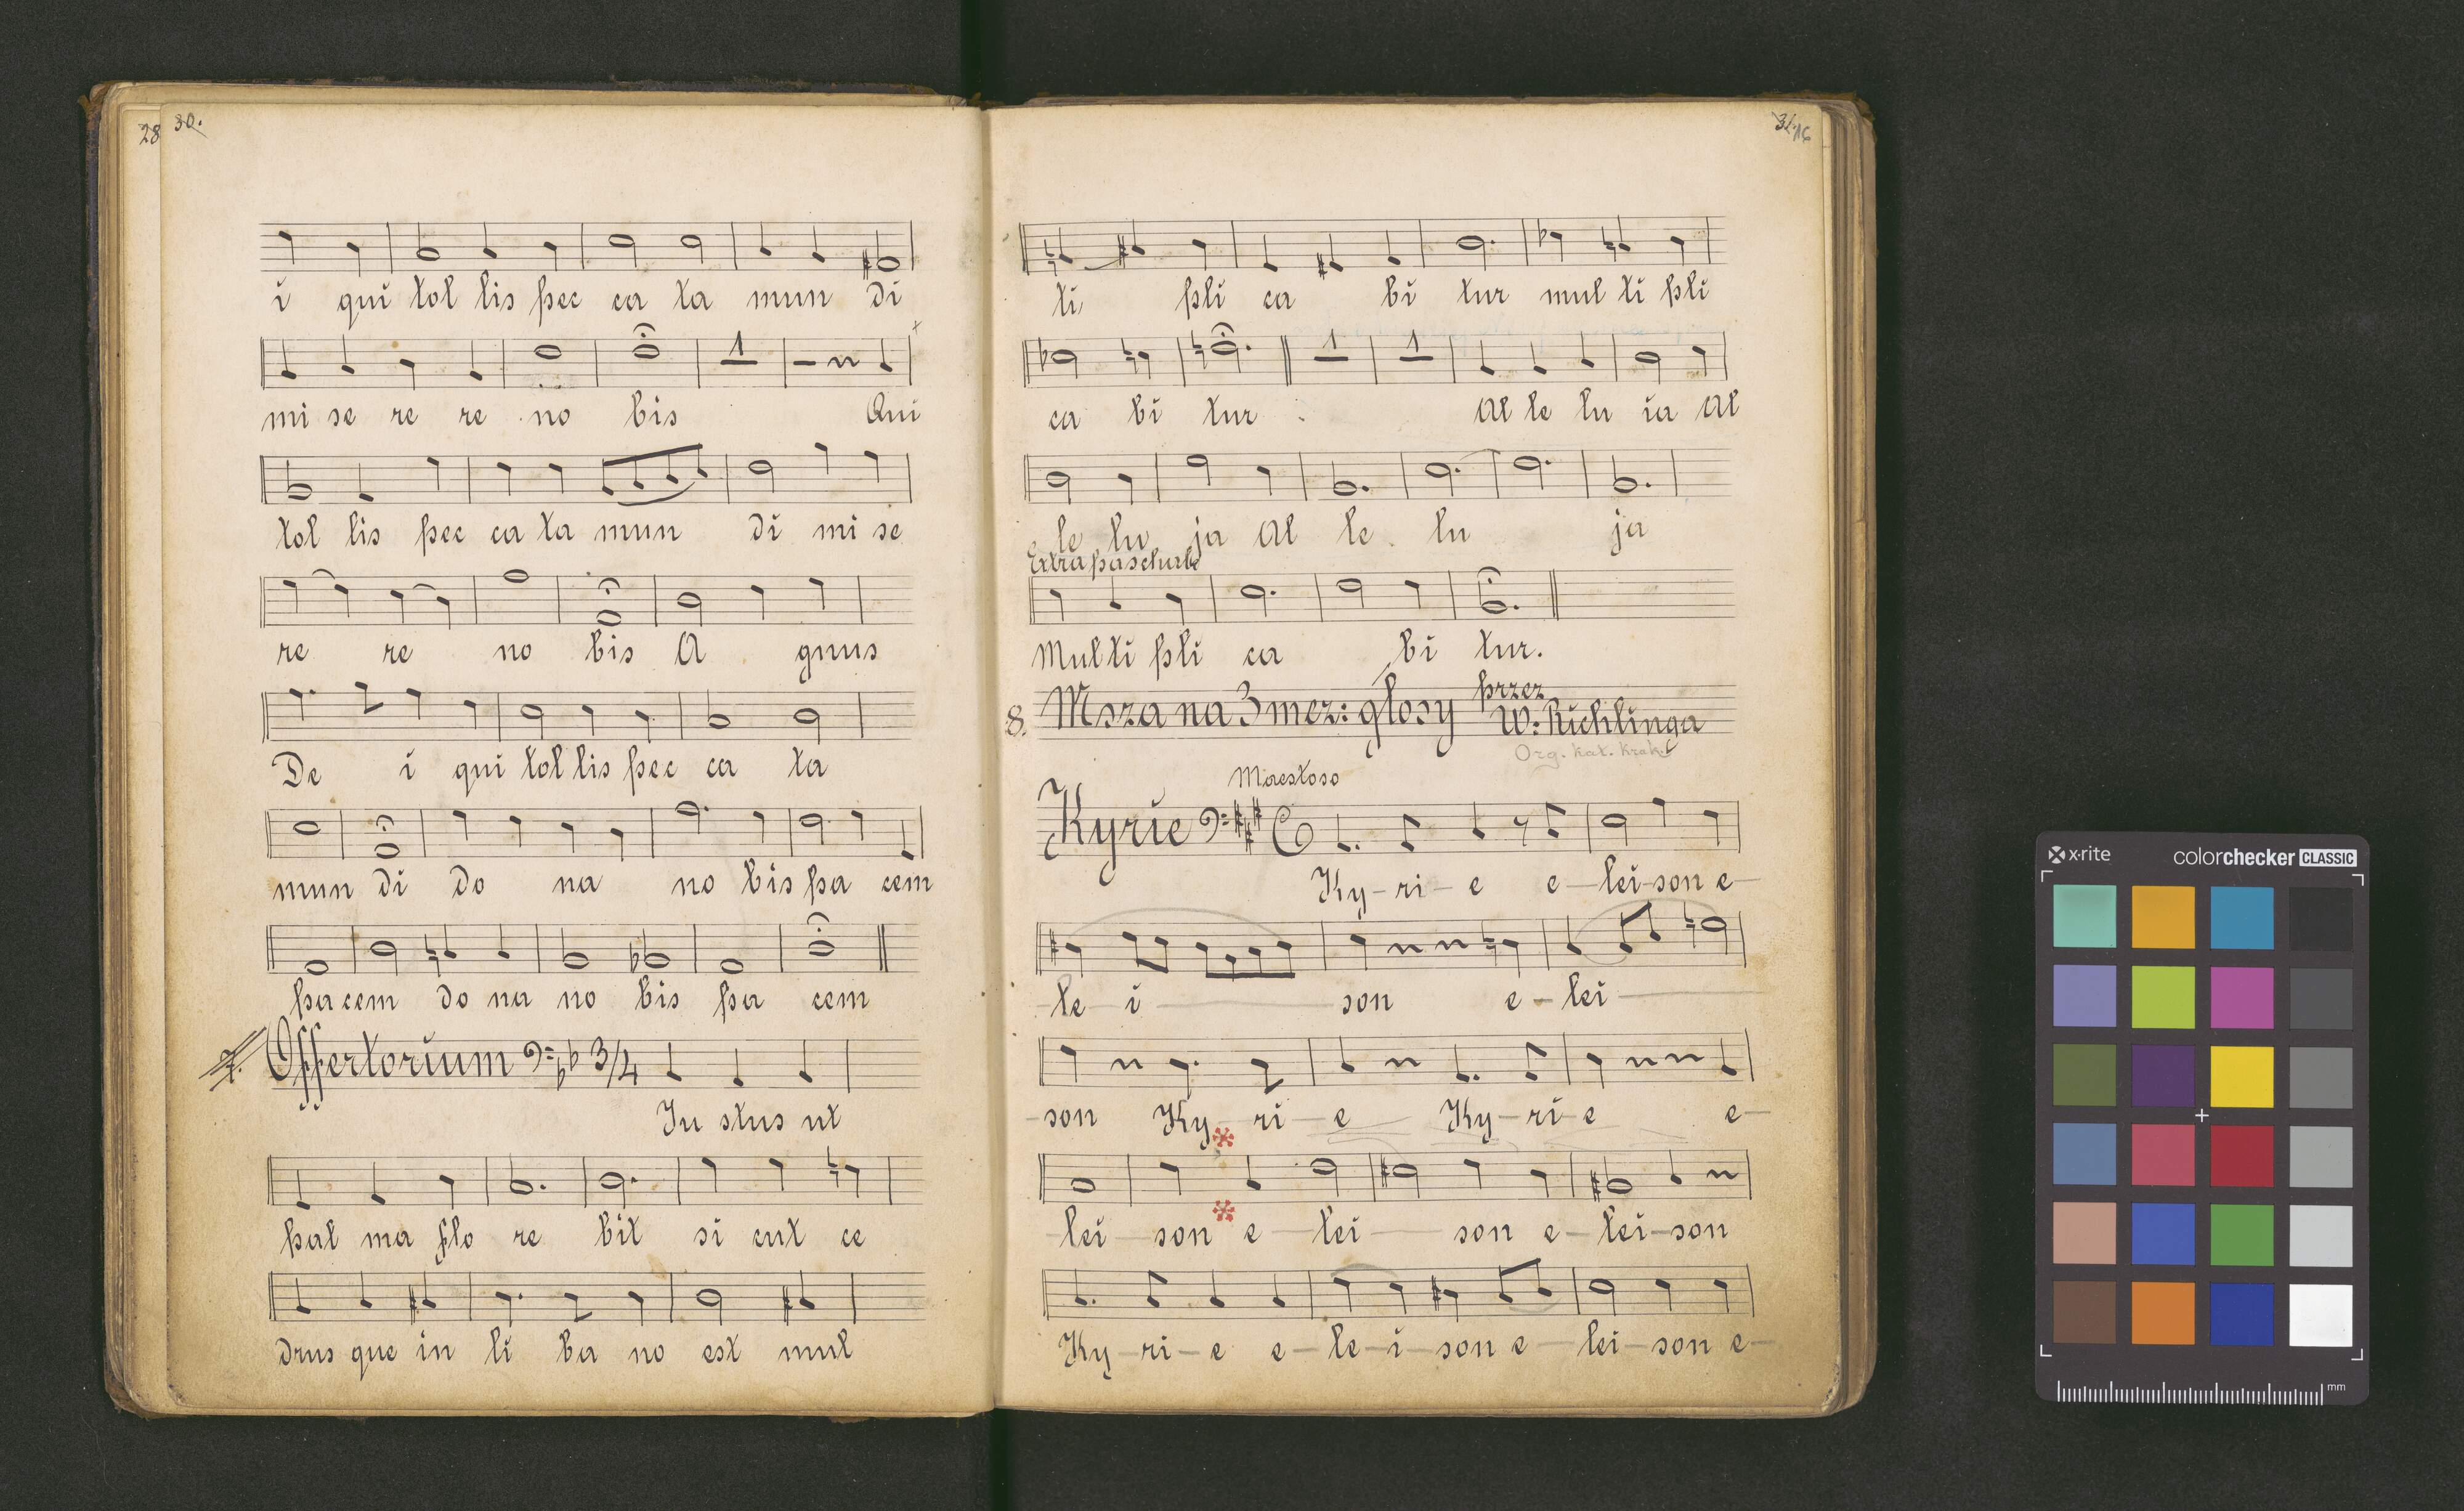 28 30.
i qui tol lis pec ca ta mun di
mi se re re no bis Qui
tol lis pec ca ta mun di mi se
re re no bis A gnus
De i qui tol lis pec ca ta
mun di do na no bis pa cem
pa cem do na no bis pa cem
7. Offertorium 3/4
Ju stus ut
pal ma flo re bit si cut ce
drus que in li ba no est mul
16
ti pli ca bi tur mul ti pli
1 1
ca bi tur Al le lu ia Al
le lu ja Al le lu ja
Extra paschale
Multi pli ca bi tur.
8. Msza na 3 męz: głosy przez
W: Richlinga
Org. kat. Krak.
Maestoso
Kyrie
Ky-ri-e e-lei-son e-
le i son e-lei
-son Ky-ri-e Ky-ri-e e-
lei-son e-lei-son e-lei-son
Ky-ri-e e-le-i-son e-lei-son e-
x-rite colorchecker CLASSIC
mm